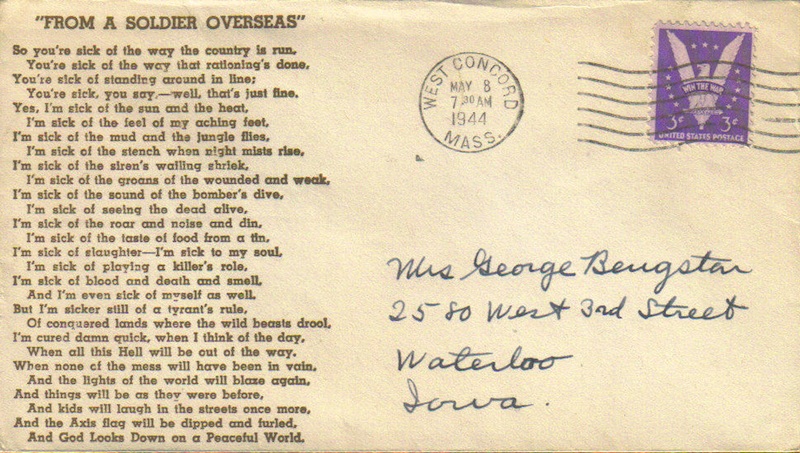 "FROM A SOLDIER OVERSEAS"
So you're sick of the way the country is run,
You're sick of the way that rationing's done,
You're sick of standing around in line;
You're sick, you say,—well, that's just fine,
Yes, I'm sick of the sun and the heat,
I'm sick of the feel of my aching feet,
I'm sick of the mud and the jungle flies,
I'm sick of the stench when night mists rise,
I'm sick of the siren's wailing shriek,
I'm sick of the groans of the wounded and weak,
I'm sick of the sound of the bomber's dive,
I'm sick of seeing the dead alive,
I'm sick of the roar and noise and din,
I'm sick of the taste of food from a tin,
I'm sick of slaughter—I'm sick to my soul,
I'm sick of playing a killer's role,
I'm sick of blood and death and smell,
And I'm even sick of myself as well,
But I'm sicker still of a tyrant's rule,
Of conquered lands where the wild beasts drool,
I'm cured damn quick, when I think of the day,
When all this Hell will be out of the way,
When none of the mess will have been in vain,
And the lights of the world will blaze again,
And things will be as they were before,
And kids will laugh in the streets once more,
And the Axis flag will be dipped and furled,
And God Looks Down on a Peaceful World.
WEST CONCORD
MAY 8
7 30 AM
1944
MASS.
WIN THE WAR
3¢ 3¢
UNITED STATES POSTAGE
Mrs George Bengstar
2580 West 3rd Street
Waterloo
Iowa.